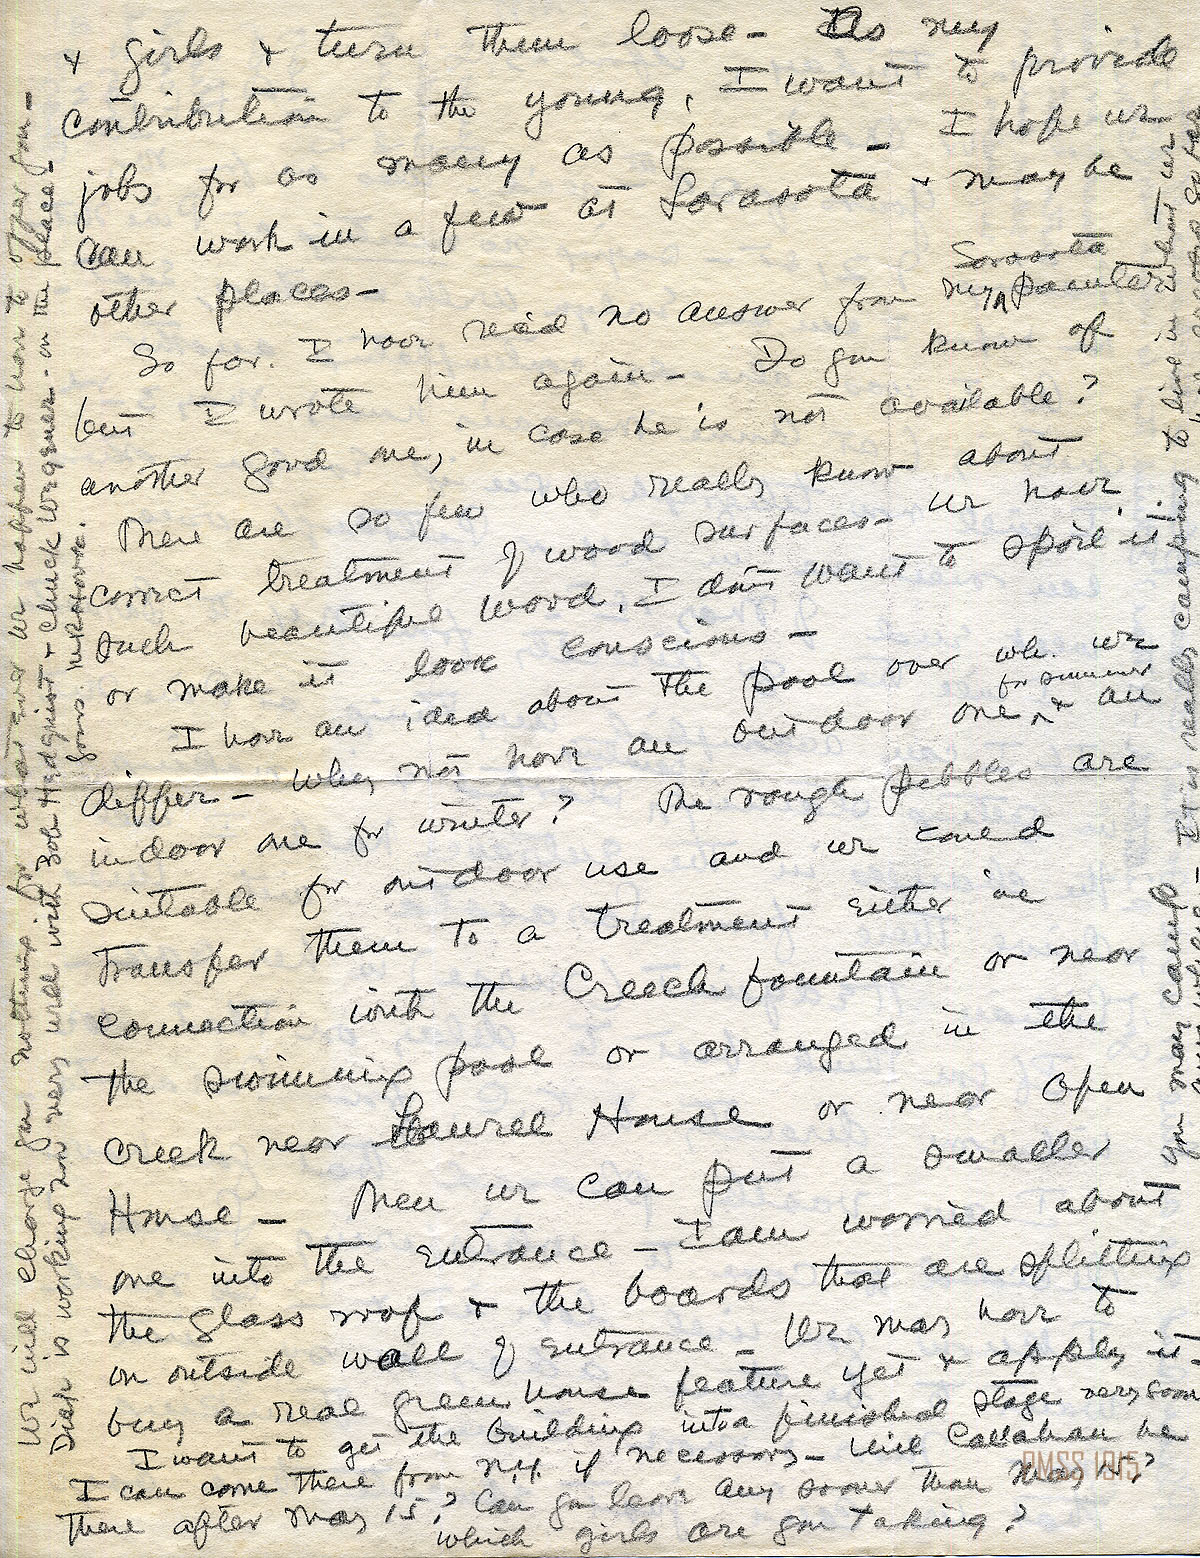 & girls & turn them loose - As my
contribution to the young, I want to provide
jobs for as many as possible - I hope we
can work in a few at Sarasota & may be
other places -
So far. I have rec'd no answer from my Sarasota painter
but I wrote him again - Do you know of
another good one, in case he is not available?
There are so few who really know about
correct treatment of wood surfaces - We have
such beautiful wood, I don't want to spoil it!
or make it look conscious -
I have an idea about the pool over wh. we
differ - Why not have an outdoor one for summer & an
indoor one for winter? The rough pebbles are
suitable for outdoor use and we could
transfer them to a treatment either in
connection with the Creech fountain or near
the swimming pool or arranged in the
creek near Laurel House or near Open
House - Then we can put a smaller
one into the entrance - I am worried about
the glass roof & the boards that are splitting
on outside wall of entrance - We may have to
buy a real green house feature yet & apply it -
I want to get the building into a finished stage very soon
I can come there from N.Y. if necessary - Will Callahan be
there after May 15? Can you leave any sooner than May 15?
which girls are you taking?
PMSS 1915
We will charge you nothing for what ever we happen to have to offer you -
Dick is working now very well with Bob Hedquist & Chuck Wagner - on the place -
yours.
you may camp - It is really camping to live in what we